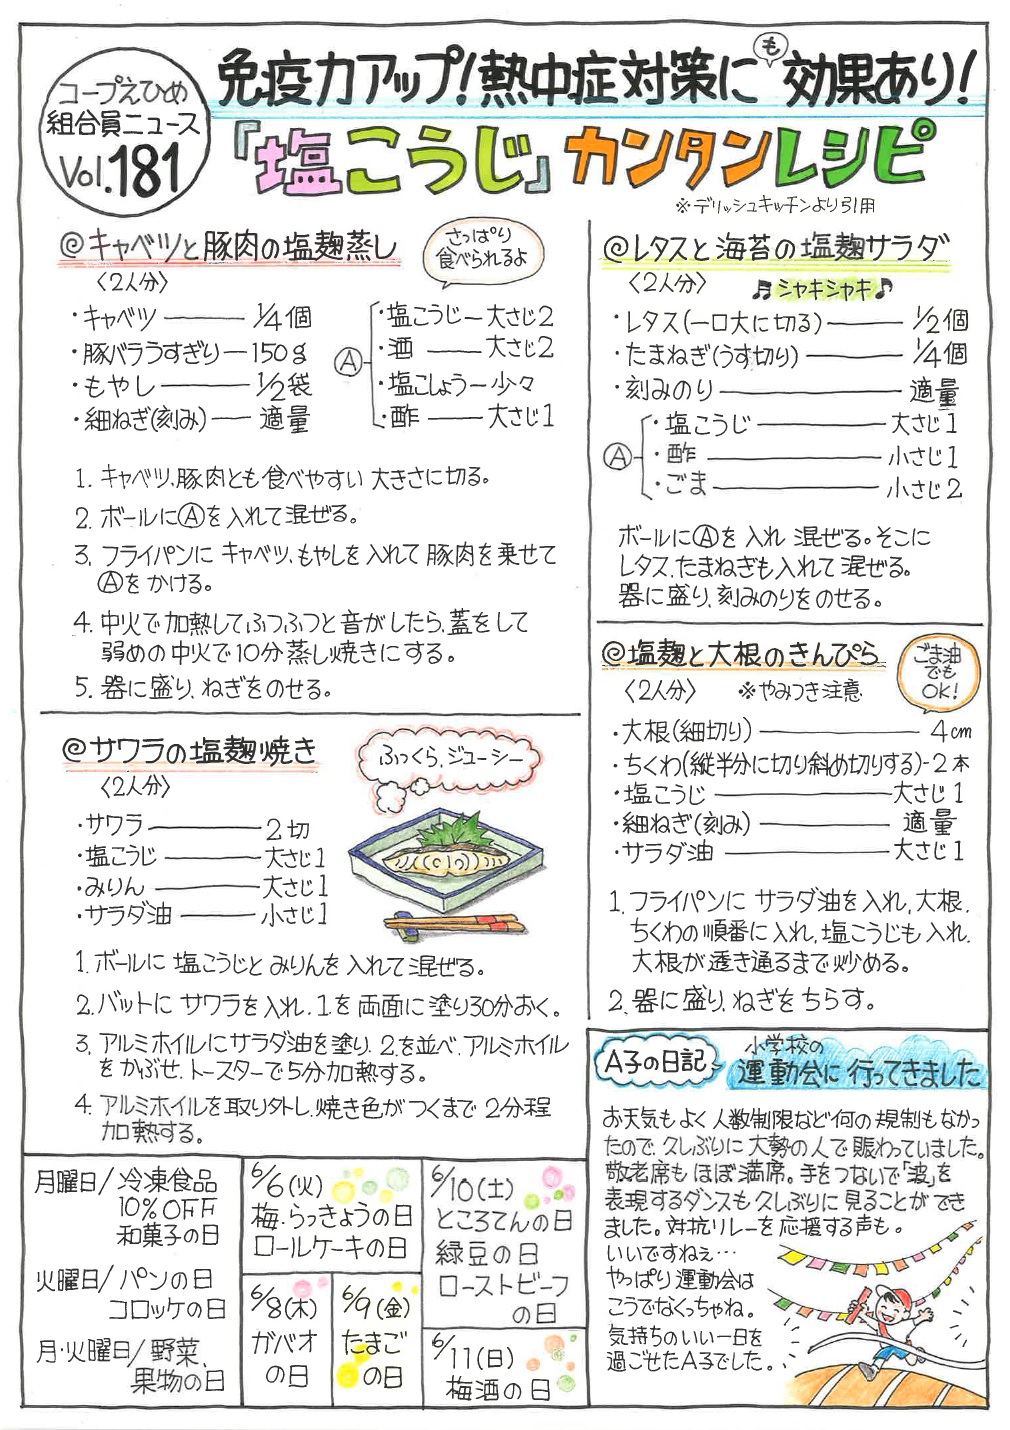 コープえひめ
組合員ニュース
Vol.181
免疫力アップ!熱中症対策にも効果あり!
『塩こうじ』カンタンレシピ
※デリッシュキッチンより引用
@キャベツと豚肉の塩麹蒸し
さっぱり
食べられるよ
〈2人分〉
・キャベツ ― 1/4個
・豚バラうすぎり ― 150g
・もやし ― 1/2袋
・細ねぎ(刻み) ― 適量
Ⓐ
・塩こうじ ― 大さじ2
・酒 ― 大さじ2
・塩こしょう ― 少々
・酢 ― 大さじ1
1. キャベツ、豚肉とも食べやすい大きさに切る。
2. ボールにⒶを入れて混ぜる。
3. フライパンにキャベツ、もやしを入れて豚肉を乗せて
Ⓐをかける。
4. 中火で加熱してふつふつと音がしたら、蓋をして
弱めの中火で10分蒸し焼きにする。
5. 器に盛り、ねぎをのせる。
@サワラの塩麹焼き
〈2人分〉
ふっくら、ジューシー
・サワラ ― 2切
・塩こうじ ― 大さじ1
・みりん ― 大さじ1
・サラダ油 ― 小さじ1
1. ボールに塩こうじとみりんを入れて混ぜる。
2. バットにサワラを入れ、1を両面に塗り30分おく。
3. アルミホイルにサラダ油を塗り、2を並べ、アルミホイル
をかぶせ、トースターで5分加熱する。
4. アルミホイルを取り外し、焼き色がつくまで2分程
加熱する。
@レタスと海苔の塩麹サラダ
〈2人分〉
♬シャキシャキ♪
・レタス(一口大に切る) ― 1/2個
・たまねぎ(うす切り) ― 1/4個
・刻みのり ― 適量
Ⓐ
・塩こうじ ― 大さじ1
・酢 ― 小さじ1
・ごま ― 小さじ2
ボールにⒶを入れ混ぜる。そこに
レタス、たまねぎも入れて混ぜる。
器に盛り、刻みのりをのせる。
@塩麹と大根のきんぴら
ごま油
でも
OK!
〈2人分〉 ※やみつき注意
・大根(細切り) ― 4cm
・ちくわ(縦半分に切り斜め切りする) - 2本
・塩こうじ ― 大さじ1
・細ねぎ(刻み) ― 適量
・サラダ油 ― 大さじ1
1. フライパンにサラダ油を入れ、大根、
ちくわの順番に入れ、塩こうじも入れ、
大根が透き通るまで炒める。
2. 器に盛り、ねぎをちらす。
A子の日記
小学校の
運動会に行ってきました
お天気もよく人数制限など何の規制もなかっ
たので、久しぶりに大勢の人で賑わっていました。
敬老席もほぼ満席。手をつないで「波」を
表現するダンスも久しぶりに見ることができ
ました。対抗リレーを応援する声も。
いいですねぇ…
やっぱり運動会は
こうでなくっちゃね。
気持ちのいい一日を
過ごせたA子でした。
月曜日/冷凍食品
10%OFF
和菓子の日
火曜日/パンの日
コロッケの日
月・火曜日/野菜、
果物の日
6/6(火)
梅・らっきょうの日
ロールケーキの日
6/8(木)
ガパオ
の日
6/9(金)
たまご
の日
6/10(土)
ところてんの日
緑豆の日
ローストビーフ
の日
6/11(日)
梅酒の日